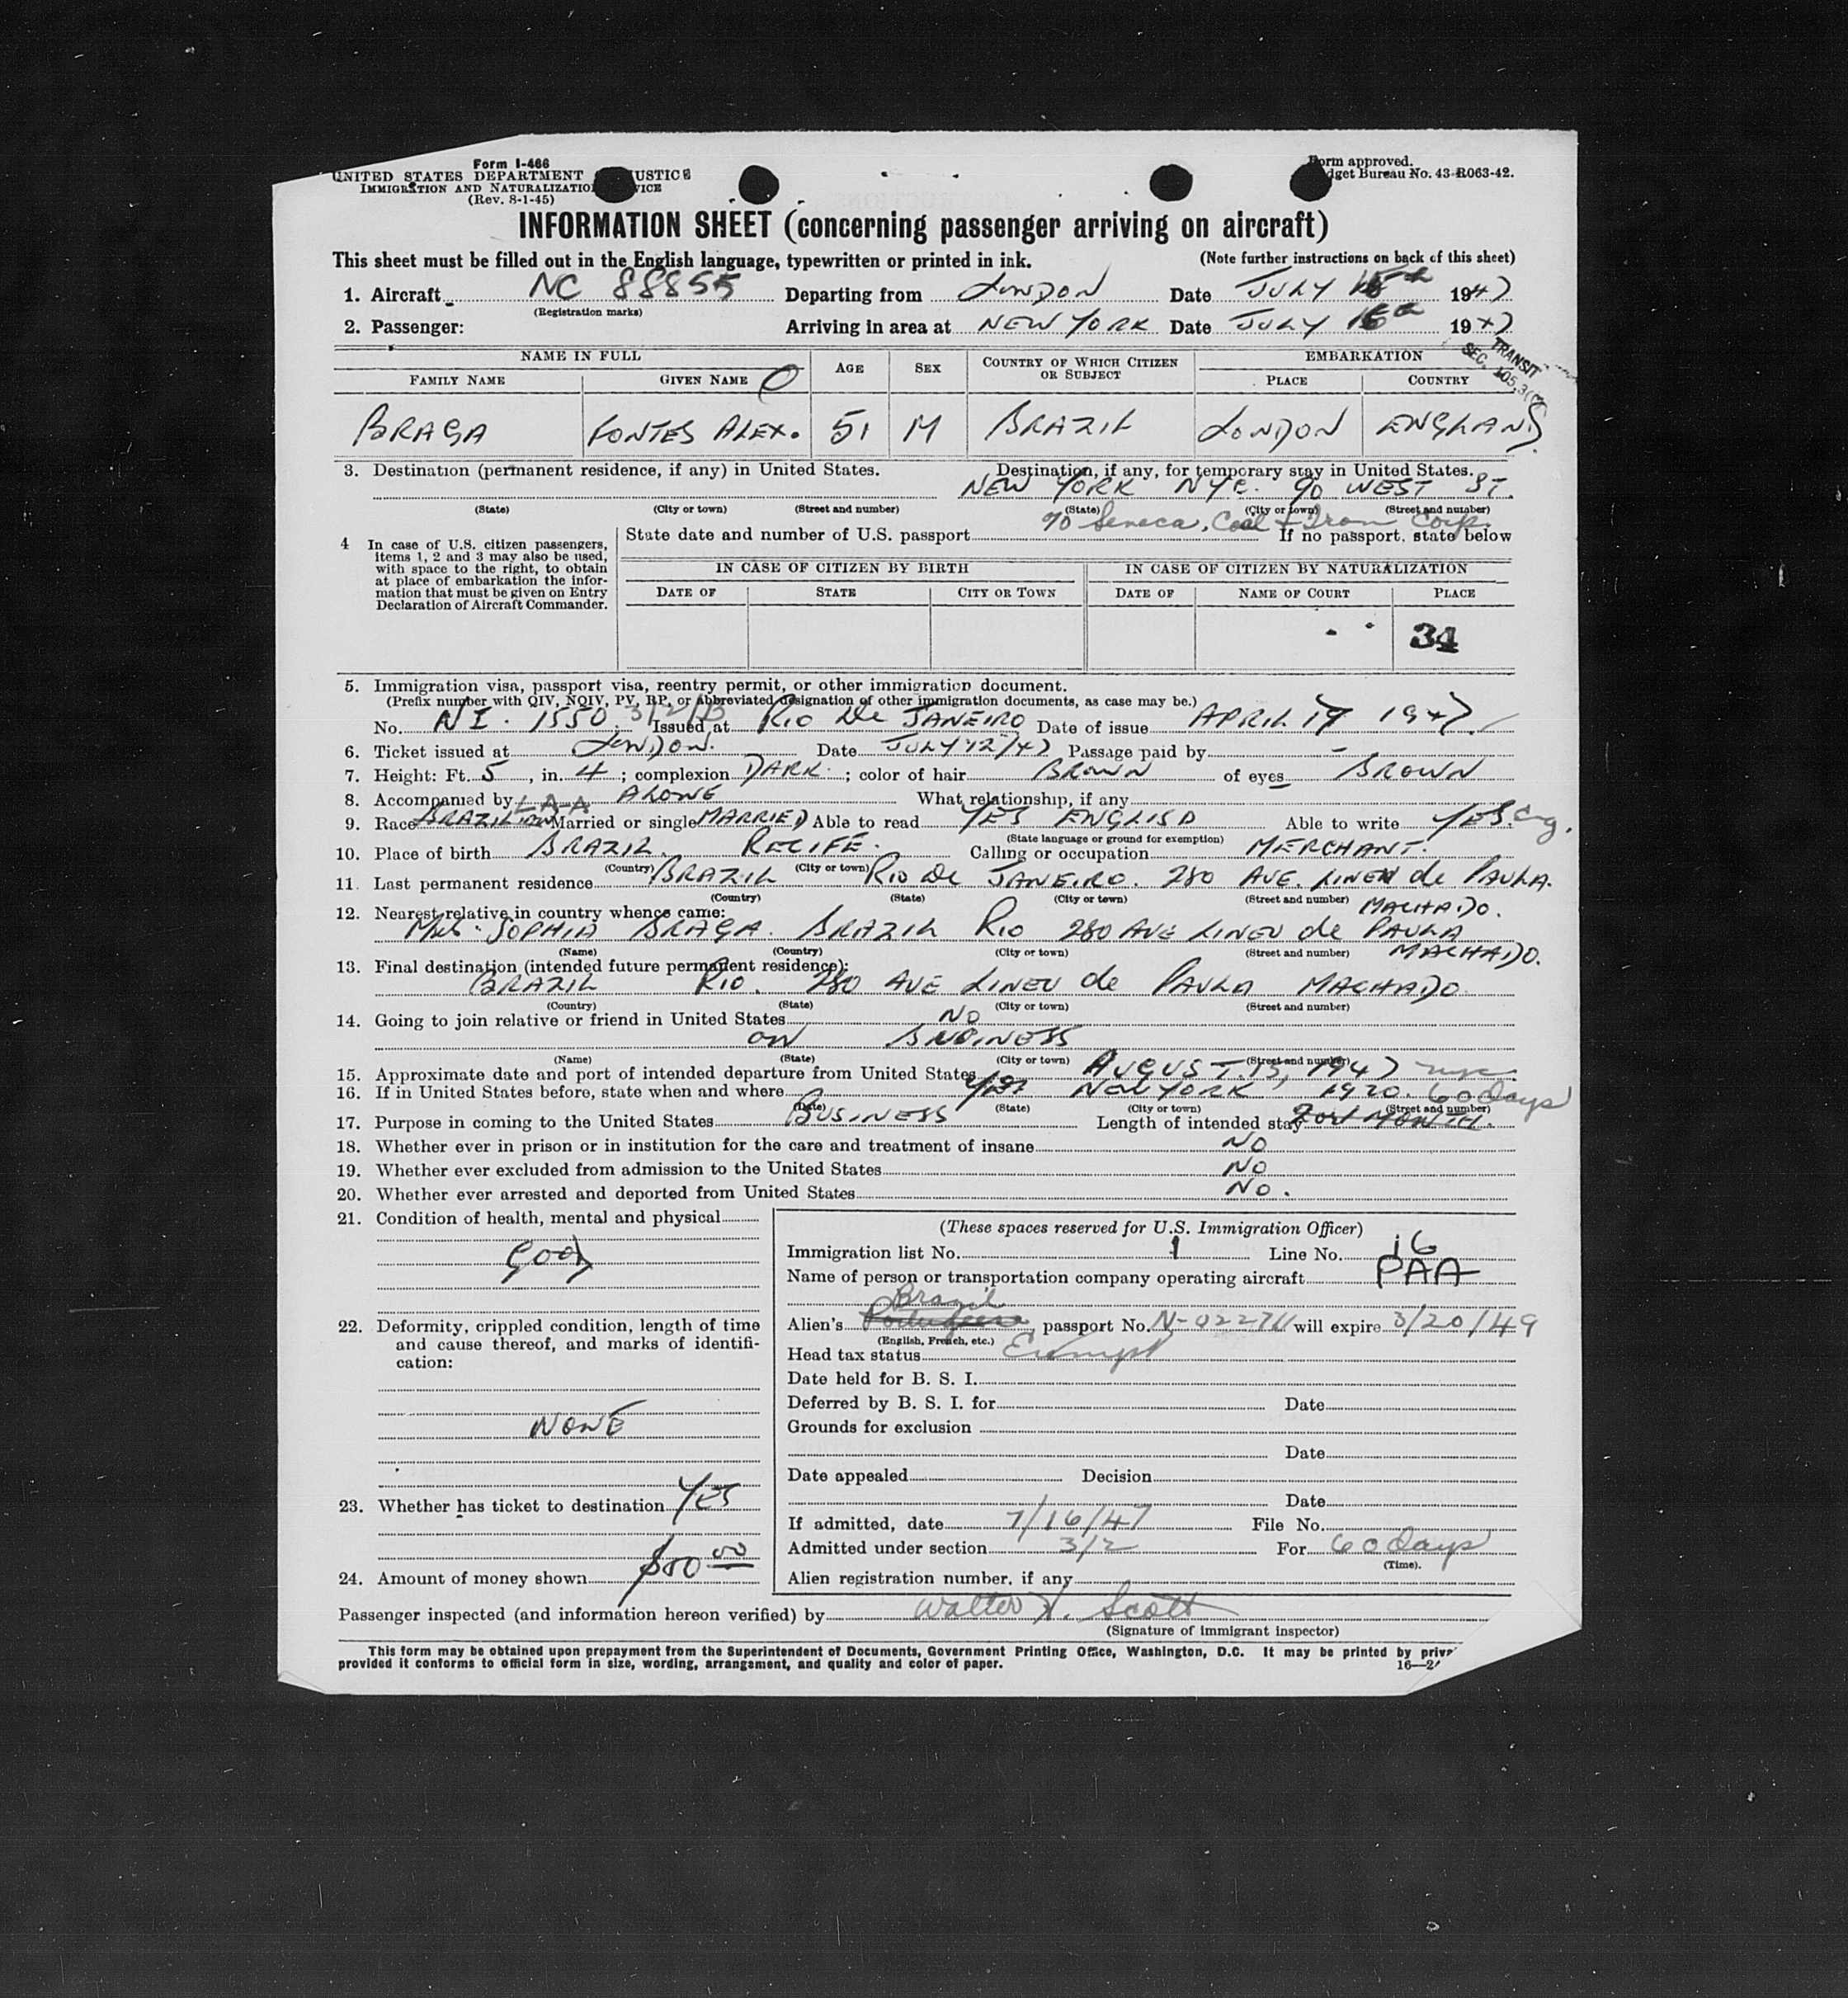 Form I-466
UNITED STATES DEPARTMENT USTICE
IMMIGRATION AND NATURALIZATIO VICE
(Rev. 8-1-45)
Form approved.
dget Bureau No. 43-R063-42.
INFORMATION SHEET (concerning passenger arriving on aircraft)
This sheet must be filled out in the English language, typewritten or printed in ink. (Note further instructions on back of this sheet)
1. Aircraft NC 88855 Departing from LONDON Date JULY 1947
(Registration marks)
2. Passenger: Arriving in area at NEW YORK Date JULY 1947
TRANSIT
SEC.
NAME IN FULL AGE SEX COUNTRY OF WHICH CITIZEN OR SUBJECT EMBARKATION
FAMILY NAME GIVEN NAME PLACE COUNTRY
BRAGA FONTES ALEX. 51 M BRAZIL LONDON ENGLAND
3. Destination (permanent residence, if any) in United States. Destination, if any, for temporary stay in United States.
NEW YORK NYC. 90 WEST ST.
(State) (City or town) (Street and number) (State) (City or town) (Street and number)
Seneca Coal + Iron Corp.
4 In case of U.S. citizen passengers, items 1, 2 and 3 may also be used, with space to the right, to obtain at place of embarkation the information that must be given on Entry Declaration of Aircraft Commander.
State date and number of U.S. passport If no passport, state below
IN CASE OF CITIZEN BY BIRTH IN CASE OF CITIZEN BY NATURALIZATION
DATE OF STATE CITY OR TOWN DATE OF NAME OF COURT PLACE
34
5. Immigration visa, passport visa, reentry permit, or other immigration document.
(Prefix number with QIV, NQIV, PV, RP, or abbreviated designation of other immigration documents, as case may be.)
No. N I. 1550 Issued at RIO DE JANEIRO Date of issue APRIL 17 1947
6. Ticket issued at LONDON. Date JULY 12/47 Passage paid by -
7. Height: Ft. 5, in. 4; complexion DARK; color of hair BROWN of eyes BROWN
8. Accompanied by ALONE What relationship, if any
9. Race BRAZILIAN Married or single MARRIED Able to read YES ENGLISH Able to write YES. Eng.
(State language or ground for exemption)
10. Place of birth BRAZIL. RECIFE. Calling or occupation MERCHANT.
(Country) (City or town)
11. Last permanent residence BRAZIL RIO DE JANEIRO. 280 AVE. LINEU de PAULA.
(Country) (State) (City or town) (Street and number) MACHADO.
12. Nearest relative in country whence came:
MRS. SOPHIA BRAGA. BRAZIL RIO 280 AVE LINEU de PAULA
(Name) (Country) (City or town) (Street and number) MACHADO.
13. Final destination (intended future permanent residence):
BRAZIL RIO. 280 AVE LINEU de PAULA MACHADO
(Country) (State) (City or town) (Street and number)
14. Going to join relative or friend in United States NO
ON BUSINESS
(Name) (State) (City or town) (Street and number)
15. Approximate date and port of intended departure from United States AUGUST. 13, 1947 nyc
16. If in United States before, state when and where YES NEW YORK 1920. 60 days
(Date) (State) (City or town) (Street and number)
17. Purpose in coming to the United States BUSINESS Length of intended stay
18. Whether ever in prison or in institution for the care and treatment of insane NO
19. Whether ever excluded from admission to the United States NO
20. Whether ever arrested and deported from United States NO.
21. Condition of health, mental and physical
good
22. Deformity, crippled condition, length of time and cause thereof, and marks of identification:
NONE
23. Whether has ticket to destination YES
24. Amount of money shown
(These spaces reserved for U.S. Immigration Officer)
Immigration list No. 1 Line No. 16
Name of person or transportation company operating aircraft PAA
Brazil
Alien's Portuguese passport No. will expire 3/20/49
(English, French, etc.)
Head tax status Exempt
Date held for B. S. I.
Deferred by B. S. I. for Date
Grounds for exclusion
Date
Date appealed Decision
Date
If admitted, date 7/16/47 File No.
Admitted under section 3/2 For 60 days
(Time).
Alien registration number, if any
Passenger inspected (and information hereon verified) by Walter Scott
(Signature of immigrant inspector)
This form may be obtained upon prepayment from the Superintendent of Documents, Government Printing Office, Washington, D.C. It may be printed by priv
provided it conforms to official form in size, wording, arrangement, and quality and color of paper. 16—2